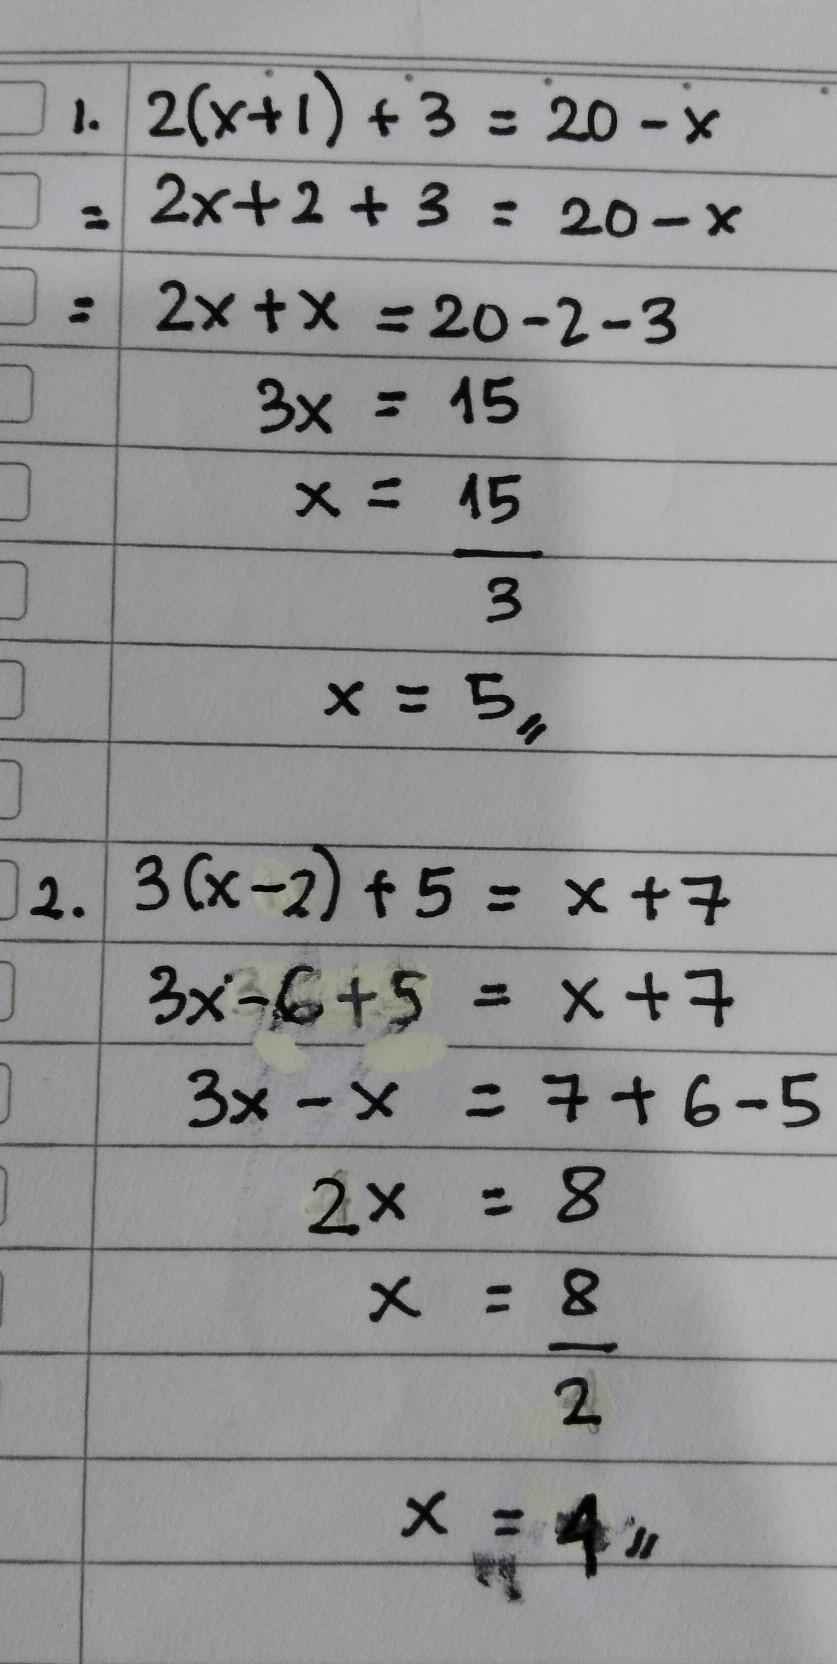 1. 2(x+1) + 3 = 20 - x
= 2x + 2 + 3 = 20 - x
= 2x + x = 20 - 2 - 3
3x = 15
x = 15
3
x = 5,,
2. 3(x-2) + 5 = x + 7
3x - 6 + 5 = x + 7
3x - x = 7 + 6 - 5
2x = 8
x = 8
2
x = 4,,